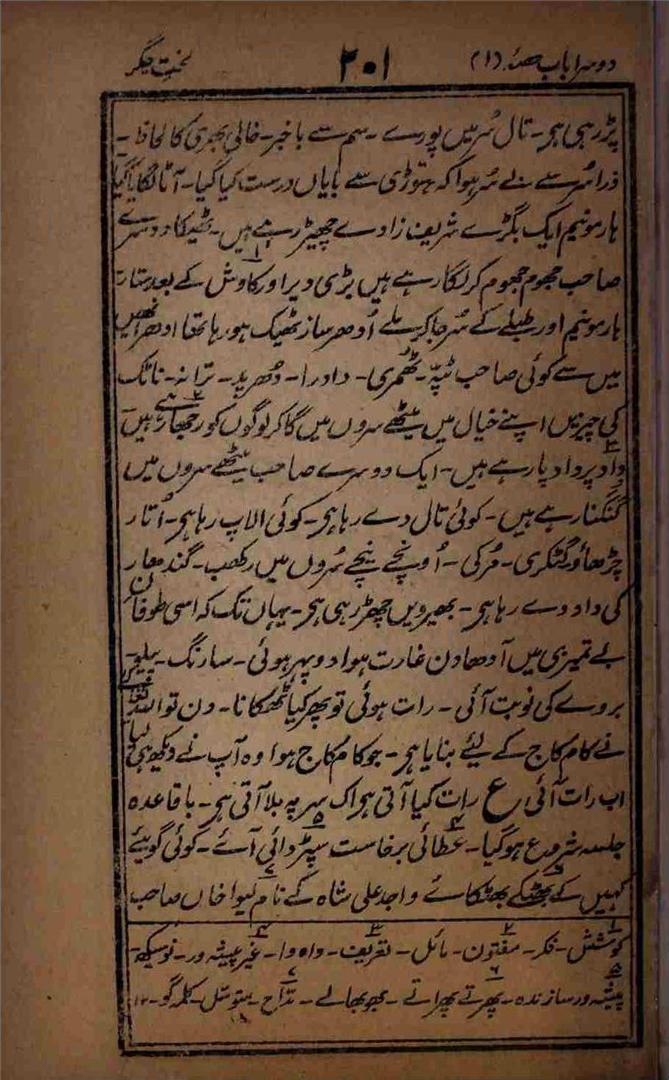 دوسرا باب حصہ (۱) ۲۰۱ لخت جگر
پڑ رہی ہی۔ تال سُر میں پورے۔ سم سے باخبر۔ خالی بھری کا لحاظ۔
ذرا سُر سے بے سُر ہوا کہ ہتوڑی سے بایاں درست کیا گیا۔ آٹا لگایا گیا
ہارمونیم ایک بگڑے شریف زادے چھیڑ رہے ہیں۔ ٹھیکا دوسرے
صاحب جھوم جھوم کر لگا رہے ہیں بڑی دیر اور کاوش کے بعد ستار
ہارمونیم اور طبلے کے سُر جا کر ملے اُودھر ساز ٹھیک ہو رہا تھا ادھر انھیں
میں سے کوئی صاحب ٹپہ۔ ٹھمری۔ دادرا۔ دُھرپد۔ ترانہ۔ ناٹک
کی چیزیں اپنے خیال میں میٹھے سروں میں گا کر لوگوں کو رجھا رہے ہیں
داد پر داد پا رہے ہیں۔ ایک دوسرے صاحب میٹھے سروں میں
گنگنا رہے ہیں۔ کوئی تال دے رہا ہی۔ کوئی الاپ رہا ہی۔ اُتار
چڑھاؤ گٹکری۔ مُرکی۔ اُونچے نیچے سُروں میں رکھب۔ گندھار
کی داد دے رہا ہی۔ بھیرویں چھڑ رہی ہی۔ یہاں تک کہ اسی طوفان
بے تمیزی میں آدھا دن غارت ہوا دوپہر ہوئی۔ سارنگ۔ پیلو۔
بروے کی نوبت آئی۔ رات ہوئی تو پھر کیا ٹھکانا۔ دن تو اللہ تعالیٰ
نے کام کاج کے لیئے بنایا ہی۔ جو کام کاج ہوا وہ آپ نے دیکھ ہی لیا
اب رات آئی ع رات کیا آتی ہی اک سر پہ بلا آتی ہی۔ باقاعدہ
جلسہ شروع ہوگیا۔ عطائی برخاست سپڑدائی آئے۔ کوئی گویئے
کہیں کے بھٹکے بھٹکائے واجد علی شاہ کے نام لیوا خاں صاحب
۱ کوشش۔ فکر۔ ۲ مفتون۔ مائل۔ ۳ تعریف۔ واہ وا۔ ۴ غیر پیشہ ور۔ نوسیکھ۔
۵ پیشہ ور سازندہ۔ ۶ پھرتے پھراتے۔ بھولے بھالے۔ ۷ مدّاح۔ متوسّل۔ کلمہ گو۔ ۱۲